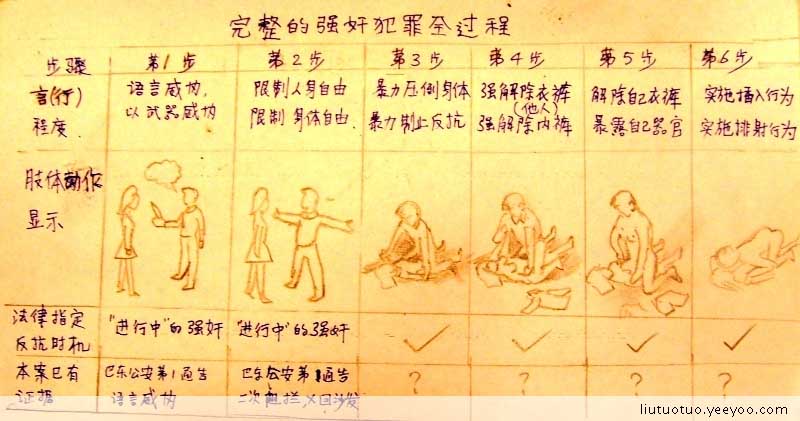 完整的强奸犯罪全过程
步骤 第1步 第2步 第3步 第4步 第5步 第6步
言(行) 语言威胁, 限制人身自由 暴力压倒身体 强解除衣裤 解除自己衣裤 实施插入行为
(他人)
程度 以武器威胁 限制身体自由 暴力制止反抗 强解除内裤 暴露自己器官 实施排射行为
肢体动作
显示
法律指定
反抗时机 "进行中"的强奸 "进行中"的强奸
本案已有 巴东公安第1通告 巴东公安第1通告 ? ? ? ?
证据 语言威胁 二次阻拦,2回沙发
liutuotuo.yeeyoo.com